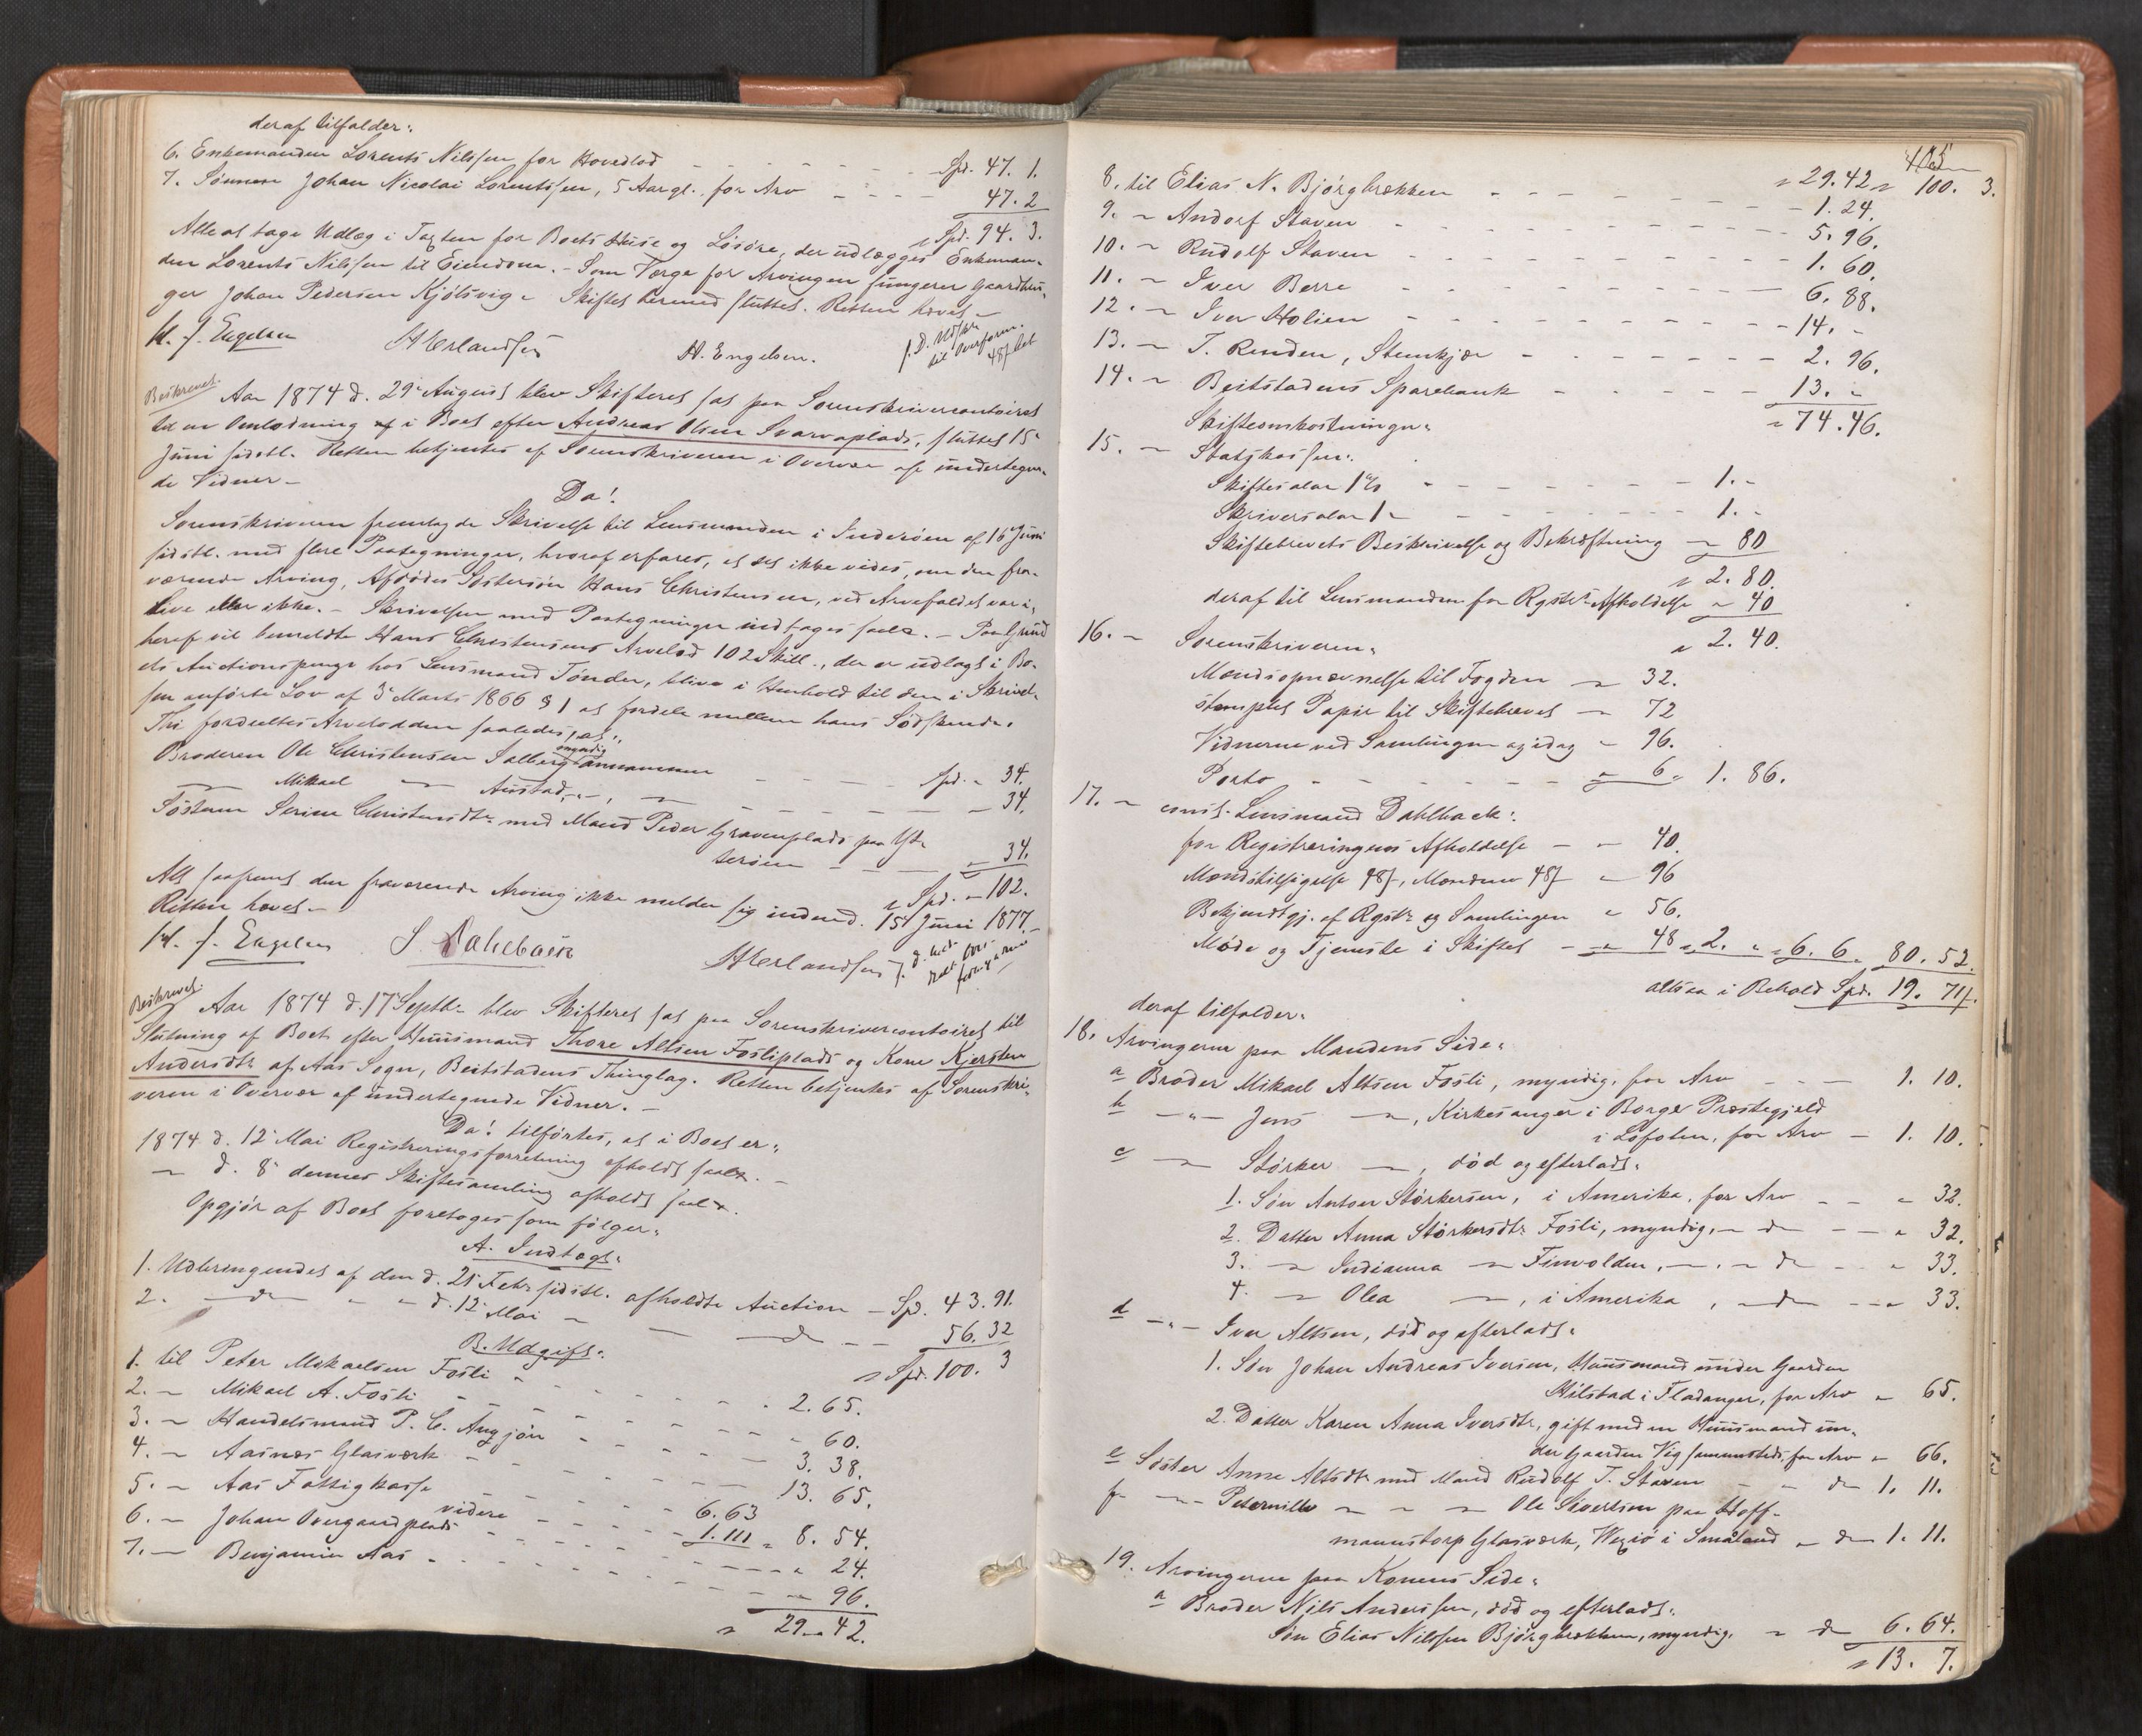 deraf tilfalder:
6. Enkemanden Lorents Nilssen for Hovedlod - - - - - - Spd. 47. 1.
7. Sønnen Johan Nicolai Lorentssen, 5 Aar gl. for Arv - - - - 47. 2
Spd. 94. 3.
Alle at tage Udlæg i Taxten for Boets Huse og Løsøre, der udlægges Enkeman-
den Lorents Nilssen til Eiendom. - Som Værge for Arvingen fungerer Gaardbru-
ger Johan Pedersen Kjølsvig. Skiftet hermed sluttet. Retten hævet. -
H. J. Engelsen H Erlandsen H. Engelsen.
Beskrevet.
Aar 1874 d. 29 August blev Skifteret sat paa Sorenskrivercontoiret
til en Omlodning i Boet efter Andreas Olsen Svarvaplads, sluttet 15
Juni sidstl. Retten betjentes af Sorenskriveren i Overvær af undertegne-
de Vidner -
Da!
Sorenskriveren fremlagde Skrivelse til Lensmanden i Inderøen af 16 Juni
sidstl. med flere Paategninger, hvoraf erfares, at det ikke vides, om den fra-
værende Arving, Afdødes Søstersøn Hans Christensen, ved Arvefaldet var i
Live eller ikke. - Skrivelsen med Paategninger indtages saal. - Paa Grund
heraf vil bemeldte Hans Christensens Arvelod 102 Skill., der er udlagt i Bo-
ets Auctionspenge hos Lensmand Tønder, blive i Henhold til den i Skrivel-
sen anførte Lov af 3 Marts 1866 § 1 at fordele mellem hans Sødskende.
Thi fordeltes Arvelodden saaledes, at:
Broderen Ole Christensen Salberg myndig annammer - - - - Spd. " 34.
— Mikael — Austad, — - - - - - 34.
Søsteren Serine Christensdtr med Mand Peder Gravenplads paa Yt-
terøen - - - - " 34.
Spd. " 102.
Alt saafremt den fraværende Arving ikke melder sig inden d. 15 Juni 1877. -
Retten hævet. -
H. J. Engelsen S Dahlback H Erlandsen
Beskrevet.
Aar 1874 d. 17 Septbr blev Skifteret sat paa Sorenskrivercontoiret til
Slutning af Boet efter Huusmand Thore Altsen Fosliplads og Kone Kjersten
Andersdtr af Aas Sogn, Beitstadens Thinglag. Retten betjentes af Sorenskri-
veren i Overvær af undertegnede Vidner. -
Da! tilførtes, at i Boet er:
1874 d. 12 Mai Registreringsforretning afholdt saal. -
— d. 8 dennes Skiftesamling afholdt saal.
Opgjør af Boet foretoges som følger:
A. Indtægt:
1. Udbringendet af den d. 25 Febr sidstl. afholdte Auction - Spd. 43. 91.
2. — d. 12 Mai — — 56. 32
Spd. 100. 3
B. Udgift:
1. til Peter Mikaelsen Fosli - - - - - 2. 65.
2. — Mikael A. Fosli - - - - - 60.
3. — Handelsmand P. C. Augjøn - - - - - 3. 38.
4. — Aasnæs Glasværk - - - - - 13. 65.
5. — Aas Fattigkasse - - - - - 6. 63
videre - - - - - 1. 111 " 8. 54.
6. — Johan Overgaardplads - - - - " 24.
7. — Benjamin Aas - - - - - 96.
29 " 42.
405
8. til Elias N. Bjørgbrækken - - - - 29. 42 " 100. 3.
1. 24.
9. — Andorf Staven - - - - 5. 96.
10. — Rudolf Staven - - - - 1. 60.
11. — Iver Berre - - - - 6. 88.
12. — Iver Holien - - - - 14. "
13. — T. Renden, Stenkjær - - - - 2. 96.
14. — Beitstadens Sparebank - - - - 13. "
74. 46.
Skifteomkostninger:
15. — Statskassen:
Skiftesalær 1% - - - - 1. "
Skriversalær 1 " - - - - 1. "
Skiftebrevets Beskrivelse og Bekræftning — 80
2. 80.
deraf til Lensmanden for Rgstr Afholdelse " 40
2. 40.
16. — Sorenskriveren:
Mandsopnævnelse til Fogden — 32.
stemplet Papir til Skiftebrevet — 72
Vidnerne ved Samlingen og idag — 96.
Porto - - - - " 6 " 1. 86.
17. — const. Lensmand Dahlback:
for Registreringens Afholdelse — 40.
Mændstilsigelse 48ſ, Mændene 48ſ " 96
Bekjendtgj. af Rgstr og Samlingen " 56.
Møde og Tjeneste i Skiftet — 48 " 2. " " 6. 6 " 80. 52.
altsaa i Behold Spd. 19. 71ſ.
deraf tilfalder:
18. Arvingerne paa Mandens Side:
a Broder Mikael Altsen Fosli, myndig, for Arv - - - 1. 10.
b — " — Jens —, Kirkesanger i Borge Præstegjeld
i Lofoten, for Arv — 1. 10.
c — Størker —, død og efterladt:
1. Søn Anton Størkersen, i Amerika, for Arv - - " 32.
2. Datter Anna Størkersdtr Fosli, myndig, — do - - " 32.
3. — Indianna — Finvolden, —, — do - - " 33.
4. — Olea —, i Amerika, — do - - " 33.
d — " — Iver Altsen, død og efterladt:
1. Søn Johan Andreas Iversen, Huusmand under Gaarden
Hilstad i Fladanger, for Arv " 65.
2. Datter Karen Anna Iversdtr, gift med en Huusmand un-
der Gaarden Vig sammesteds, for Arv " 66.
e Søster Anne Altsdtr med Mand Rudolf T. Staven - - do 1. 11.
f — " — Peternille — — — Ole Sivertsen paa Hoff-
mannstorp Glasværk, Wexiö i Småland — do 1. 11.
19. Arvingerne paa Konens Side:
a Broder Nils Anderssen, død og efterladt:
Søn Elias Nilssen Bjørgbrækken, myndig, — do 6. 64.
13. 7.